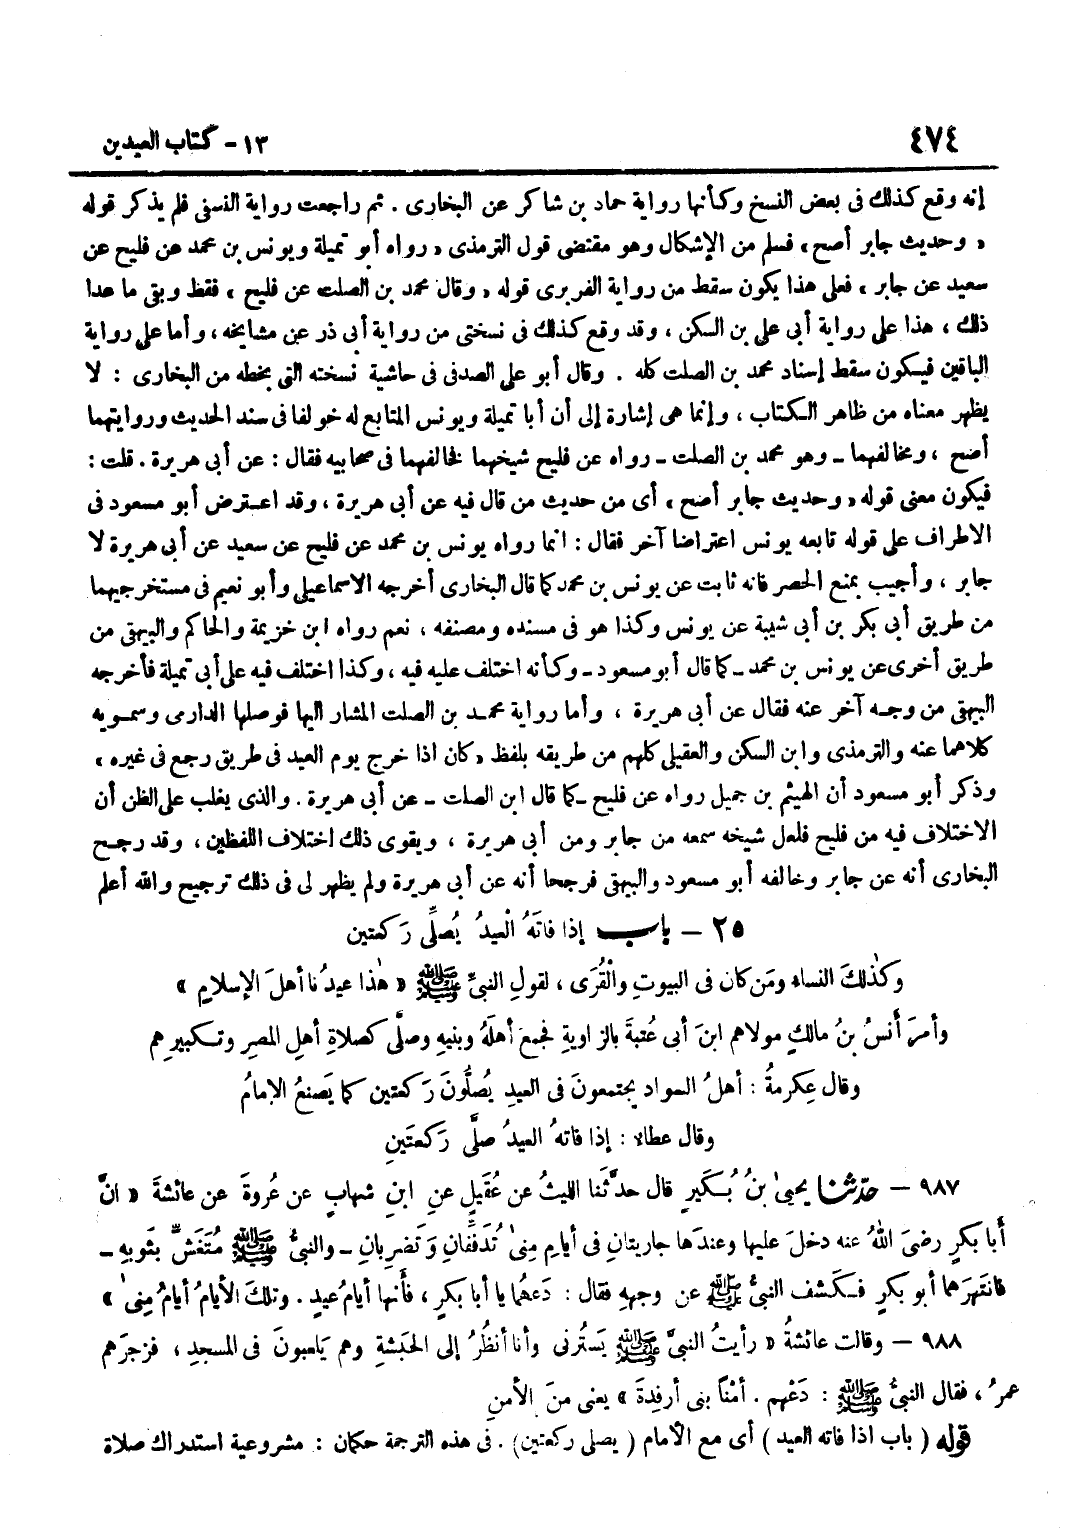 ٤٧٤
١٣ - كتاب العيدين
إنه وقع كذلك فى بعض النسخ وكأنها رواية حماد بن شاكر عن البخارى . ثم راجعت رواية النسفى فلم يذكر قوله
« وحديث جابر أصح » فسلم من الإشكال وهو مقتضى قول الترمذى « رواه أبو تميلة ويونس بن محمد عن فليح عن
سعيد عن جابر » فعلى هذا يكون سقط من رواية الفربرى قوله « وقال محمد بن الصلت عن فليح » فقط وبقى ما عدا
ذلك ، هذا على رواية أبى على بن السكن ، وقد وقع كذلك فى نسختى من رواية أبى ذر عن مشايخه ، وأما على رواية
الباقين فيكون سقط إسناد محمد بن الصلت كله . وقال أبو على الصدفى فى حاشية نسخته التى بخطه من البخارى : لا
يظهر معناه من ظاهر الكتاب ، وإنما هى إشارة إلى أن أبا تميلة ويونس المتابع له خولفا فى سند الحديث وروايتهما
أصح ، ومخالفهما ـ وهو محمد بن الصلت ـ رواه عن فليح شيخهما فخالفهما فى صحابيه فقال : عن أبى هريرة . قلت :
فيكون معنى قوله « وحديث جابر أصح » أى من حديث من قال فيه عن أبى هريرة ، وقد اعترض أبو مسعود فى
الاطراف على قوله تابعه يونس اعتراضا آخر فقال : انما رواه يونس بن محمد عن فليح عن سعيد عن أبى هريرة لا
جابر ، وأجيب بمنع الحصر فانه ثابت عن يونس بن محمد كما قال البخارى أخرجه الاسماعيلى وأبو نعيم فى مستخرجيهما
من طريق أبى بكر بن أبى شيبة عن يونس وكذا هو فى مسنده ومصنفه ، نعم رواه ابن خزيمة والحاكم والبيهقى من
طريق أخرى عن يونس بن محمد ـ كما قال أبو مسعود ـ وكأنه اختلف عليه فيه ، وكذا اختلف فيه على أبى تميلة فأخرجه
البيهقى من وجه آخر عنه فقال عن أبى هريرة ، وأما رواية محمد بن الصلت المشار اليها فوصلها الدارمى وسمويه
كلاهما عنه والترمذى وابن السكن والعقيلى كلهم من طريقه بلفظ « كان اذا خرج يوم العيد فى طريق رجع فى غيره »
وذكر أبو مسعود أن الهيثم بن جميل رواه عن فليح ـ كما قال ابن الصلت ـ عن أبى هريرة . والذى يغلب على الظن أن
الاختلاف فيه من فليح فلعل شيخه سمعه من جابر ومن أبى هريرة ، ويقوى ذلك اختلاف اللفظين ، وقد رجح
البخارى أنه عن جابر وخالفه أبو مسعود والبيهقى فرجحا أنه عن أبى هريرة ولم يظهر لى فى ذلك ترجيح والله أعلم
٢٥ – باب إذا فاتَهُ الْعيدُ يُصلِّى رَكعتين
وكذٰلكَ النساء ومَن كان فى البيوتِ والْقُرَى ، لقولِ النبىِّ ﷺ « هٰذا عيدُنا أهلَ الإسلامِ »
وأمرَ أَنسُ بنُ مالكٍ مولاهم ابنَ أبى عُتبةَ بالزاويةِ فجمعَ أهلَهُ وبنيهِ وصلَّى كصلاةِ أهلِ المصرِ وتكبيرِهم
وقال عِكرمةُ : أهلُ السوادِ يجتمعونَ فى العيدِ يُصلُّونَ رَكعتين كما يَصنعُ الإمامُ
وقال عطاء : إذا فاتهُ العيدُ صلَّى رَكعتَينِ
٩٨٧ – حدّثنا يحيىٰ بنُ بُكَيرٍ قال حدَّثَنا الليثُ عن عُقَيلٍ عنِ ابنِ شهابٍ عن عُروةَ عن عائشةَ « انَّ
أَبا بكرٍ رضىَ اللهُ عنه دخلَ عليها وعندَها جاريتانِ فى أيامِ مِنىٰ تُدَفِّفانِ وَتَضرِبانِ ـ والنبىُّ ﷺ مُتَغَشٍّ بثوبهِ ـ
فانتَهرَهما أبو بكرٍ فكشف النبىُّ ﷺ عن وجههِ فقال : دَعْهُما يا أبا بكرٍ ، فأَنها أيامُ عيدٍ . وتلكَ الأيامُ أيامُ مِنىٰ »
٩٨٨ – وقالت عائشةُ « رأيتُ النبىَّ ﷺ يَستُرنى وأنا أنظُرُ إلى الحَبشةِ وهم يَلعبونَ فى المسجدِ ، فزجرَهم
عمرُ ، فقال النبىُّ ﷺ : دَعْهم . أَمْناً بنى أرفِدةَ » يعنى منَ الأمنِ
قوله ( باب اذا فاته العيد ) أى مع الأمام ( يصلى ركعتين) . فى هذه الترجمة حكمان : مشروعية استدراك صلاة